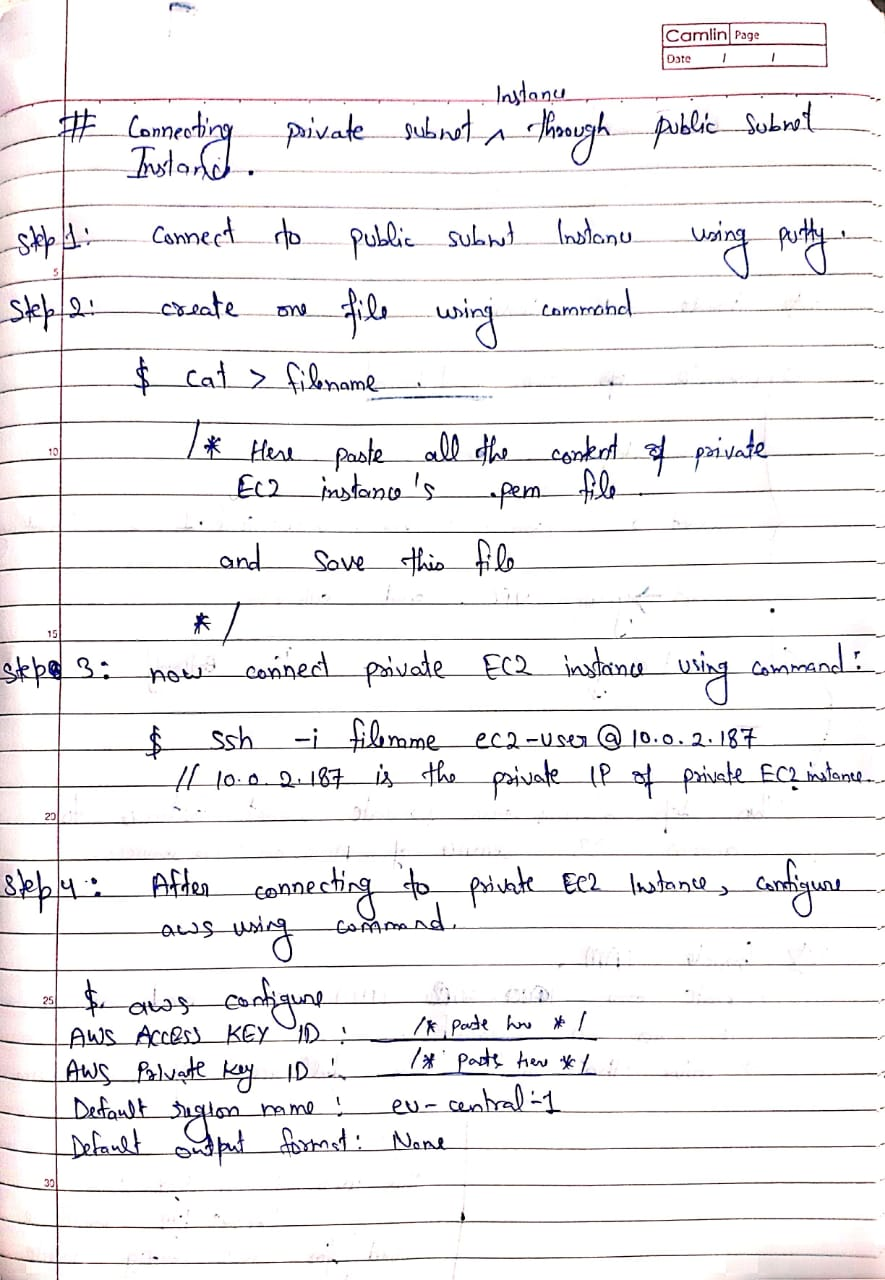 Camlin Page
Date / /
Instance
# Connecting private subnet ^ through public subnet
Instance.
Step 1: Connect to public subnet Instance using putty.
5
Step 2: create one file using command
$ cat > filename
10
/* Here paste all the content of private
EC2 instance's .pem file
and Save this file
15
*/
Step 3: now connect private EC2 instance using command:
$ ssh -i filename ec2-user@10.0.2.187
// 10.0.2.187 is the private IP of private EC2 instance.
20
Step 4: After connecting to private EC2 Instance, configure
aws using command.
25
$ aws configure
AWS ACCESS KEY ID : /* paste here */
AWS Private Key ID : /* paste here */
Default region name : eu-central-1
Default output format: None
30